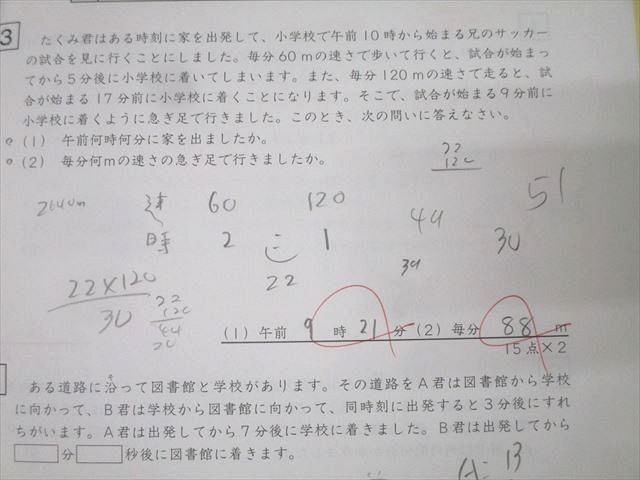 3 たくみ君はある時刻に家を出発して、小学校で午前10時から始まる兄のサッカー
の試合を見に行くことにしました。毎分60mの速さで歩いて行くと、試合が始まっ
てから5分後に小学校に着いてしまいます。また、毎分120mの速さで走ると、試
合が始まる17分前に小学校に着くことになります。そこで、試合が始まる9分前に
小学校に着くように急ぎ足で行きました。このとき、次の問いに答えなさい。
(1) 午前何時何分に家を出ましたか。
(2) 毎分何mの速さの急ぎ足で行きましたか。
22
120
2640m 速 60 120 44 51
時 2 : 1 39 30
22
22×120
30
22
120
44
(1) 午前 9 時 21 分 (2) 毎分 88 m
15点×2
ある道路に沿って図書館と学校があります。その道路をA君は図書館から学校
に向かって、B君は学校から図書館に向かって、同時刻に出発すると3分後にすれ
ちがいます。A君は出発してから7分後に学校に着きました。B君は出発してから
分 秒後に図書館に着きます。
A: 13